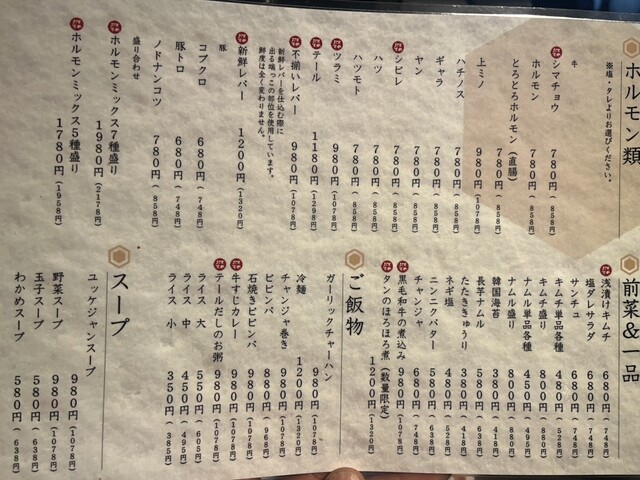 ホルモン類
※塩・タレよりお選びください。
牛
シマチョウ 780円(858円)
ホルモン 780円(858円)
とろとろホルモン(直腸) 780円(858円)
上ミノ 980円(1078円)
ハチノス 780円(858円)
ギャラ 780円(858円)
ヤン 780円(858円)
シビレ 780円(858円)
ハツ 780円(858円)
ハツモト 780円(858円)
ツラミ 980円(1078円)
テール 1180円(1298円)
不揃いレバー 980円(1078円)
新鮮レバーを仕込む際に
出る端っこの部位を使用しています。
鮮度は全く変わりません。
新鮮レバー 1200円(1320円)
豚
コブクロ 680円(748円)
豚トロ 680円(748円)
ノドナンコツ 780円(858円)
盛り合わせ
ホルモンミックス7種盛り 1980円(2178円)
ホルモンミックス5種盛り 1780円(1958円)
前菜&一品
浅漬けキムチ 680円(748円)
塩ダレサラダ 680円(748円)
サンチュ 680円(748円)
キムチ単品各種 480円(528円)
キムチ盛り 800円(880円)
ナムル単品各種 450円(495円)
ナムル盛り 800円(880円)
韓国海苔 380円(418円)
長芋ナムル 580円(638円)
たたききゅうり 380円(418円)
ネギ塩 480円(528円)
ニンニクバター 580円(638円)
チャンジャ 680円(748円)
黒毛和牛の煮込み 980円(1078円)
タンのほろほろ煮(数量限定) 1200円(1320円)
ご飯物
ガーリックチャーハン 980円(1078円)
冷麺 1200円(1320円)
チャンジャ巻き 980円(1078円)
ビビンバ 880円(968円)
石焼きビビンバ 980円(1078円)
牛すじカレー 980円(1078円)
テールだしのお粥 980円(1078円)
ライス 大 550円(605円)
ライス 中 450円(495円)
ライス 小 350円(385円)
スープ
ユッケジャンスープ 980円(1078円)
野菜スープ 980円(1078円)
玉子スープ 580円(638円)
わかめスープ 580円(638円)